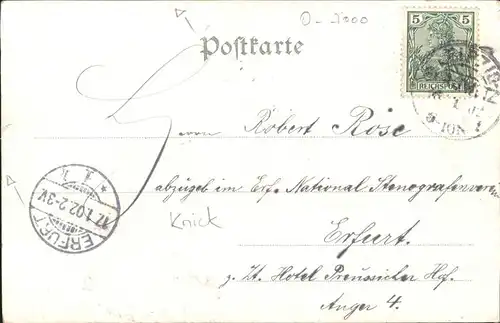 0-1000
Postkarte
5 5
REICHSPOST
Herrn Robert Rose
abzugeb im Erf. National Stenografenverein
Knick
Erfurt.
z. Zt. Hotel Preussicher Hof.
Anger 4.
ERFURT
17.1.02.2-3V.
* 1 l